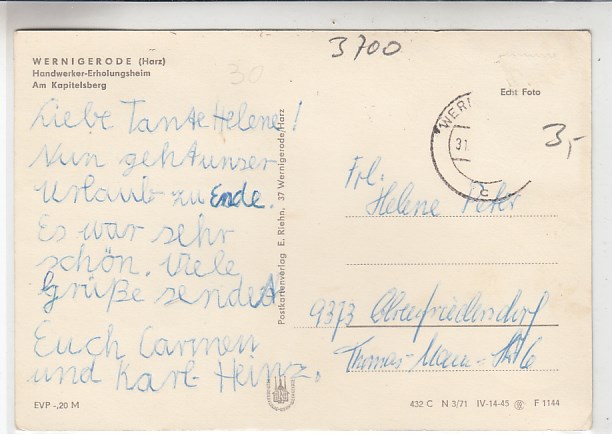 3700
WERNIGERODE (Harz)
Handwerker-Erholungsheim
Am Kapitelsberg
30
Liebe Tante Helene!
Nun geht unser
Urlaub zu Ende.
Es war sehr
schön. Viele
Grüße sendet
Euch Carmen
und Karl-Heinz.
EVP -,20 M
Postkartenverlag E. Riehn, 37 Wernigerode/Harz
Echt Foto
WERN
31
3,-
Frl.
Helene Peter
9373 Ehrenfriedersdorf
Thomas-Mann-Str.
432 C N 3/71 IV-14-45 F 1144